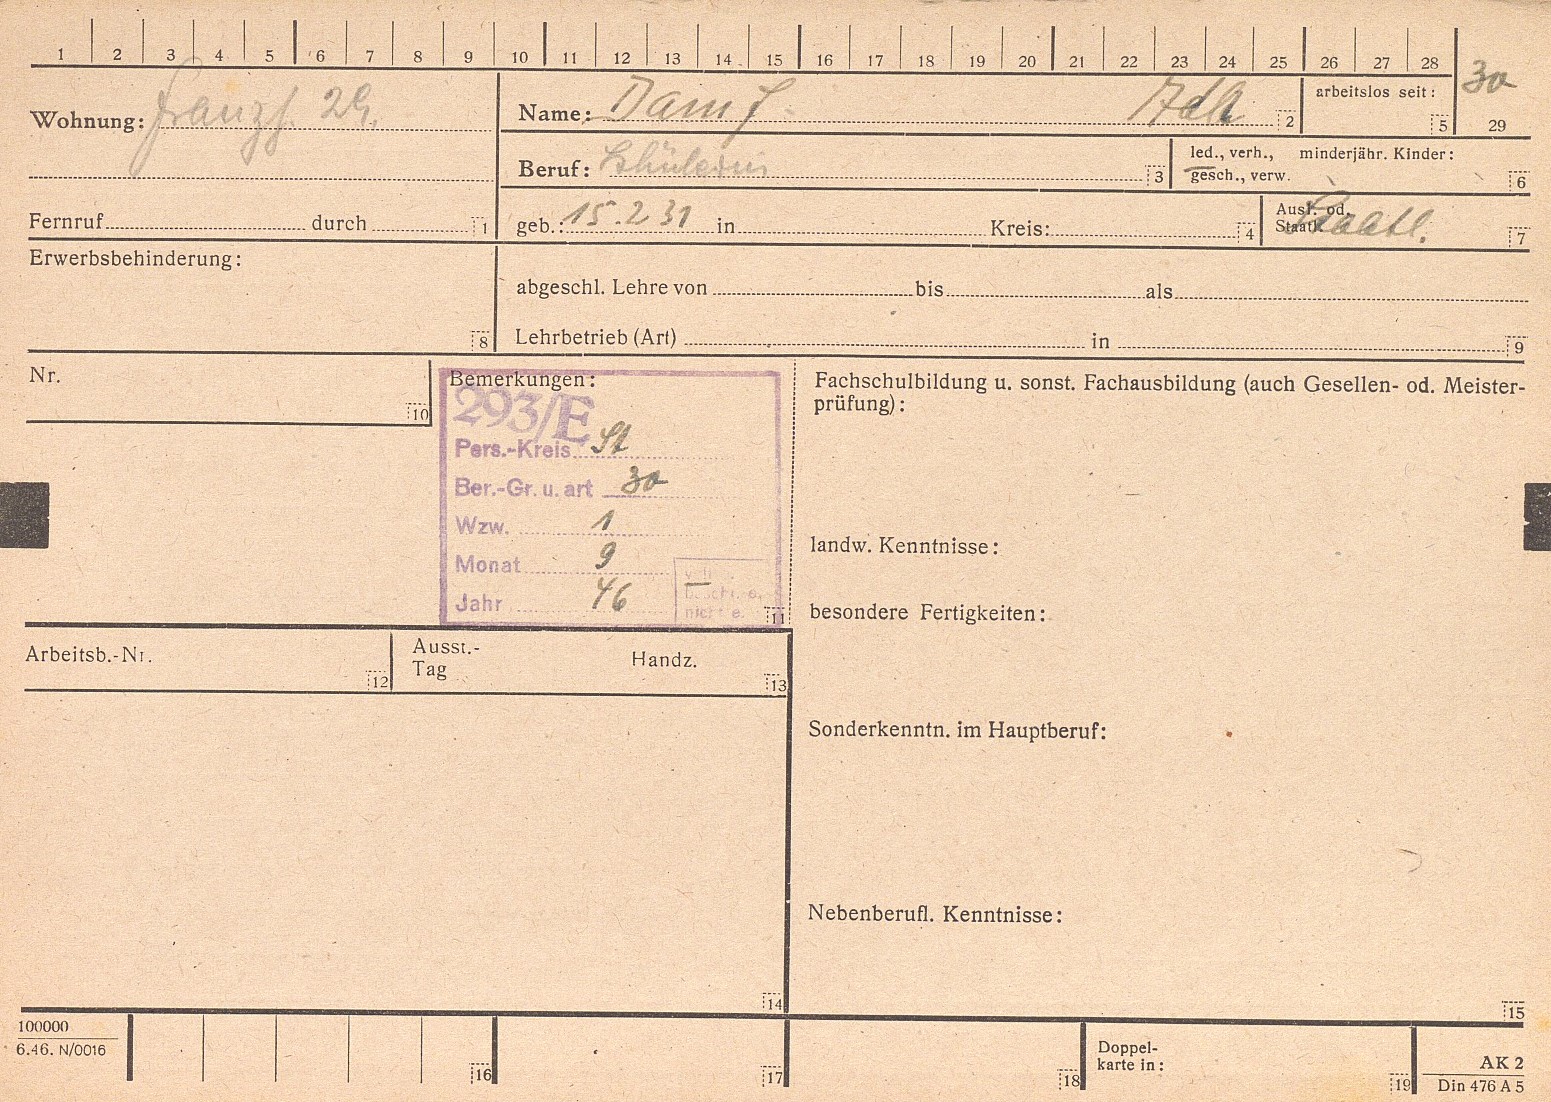 1 2 3 4 5 6 7 8 9 10 11 12 13 14 15 16 17 18 19 20 21 22 23 24 25 26 27 28
30
29
Wohnung: 29.
Name: 2
arbeitslos seit: 5
Beruf: Schülerin 3
led., verh., minderjähr. Kinder:
gesch., verw. 6
Fernruf durch 1
geb.: 15.2 31 in Kreis: 4
Ausl. od.
Staatl. Staatl. 7
Erwerbsbehinderung:
8
abgeschl. Lehre von bis als
Lehrbetrieb (Art) in 9
Nr.
10
Bemerkungen:
293/E
Pers.-Kreis St
Ber.-Gr. u. art 30
Wzw. 1
Monat 9
Jahr 46
nicht e.
11
Fachschulbildung u. sonst. Fachausbildung (auch Gesellen- od. Meister-
prüfung):
landw. Kenntnisse:
besondere Fertigkeiten:
Sonderkenntn. im Hauptberuf:
Nebenberufl. Kenntnisse:
15
Arbeitsb.-Nr.
12
Ausst.-
Tag
Handz.
13
14
100000
6.46. N/0016
16
17
18
Doppel-
karte in:
19
AK 2
Din 476 A 5